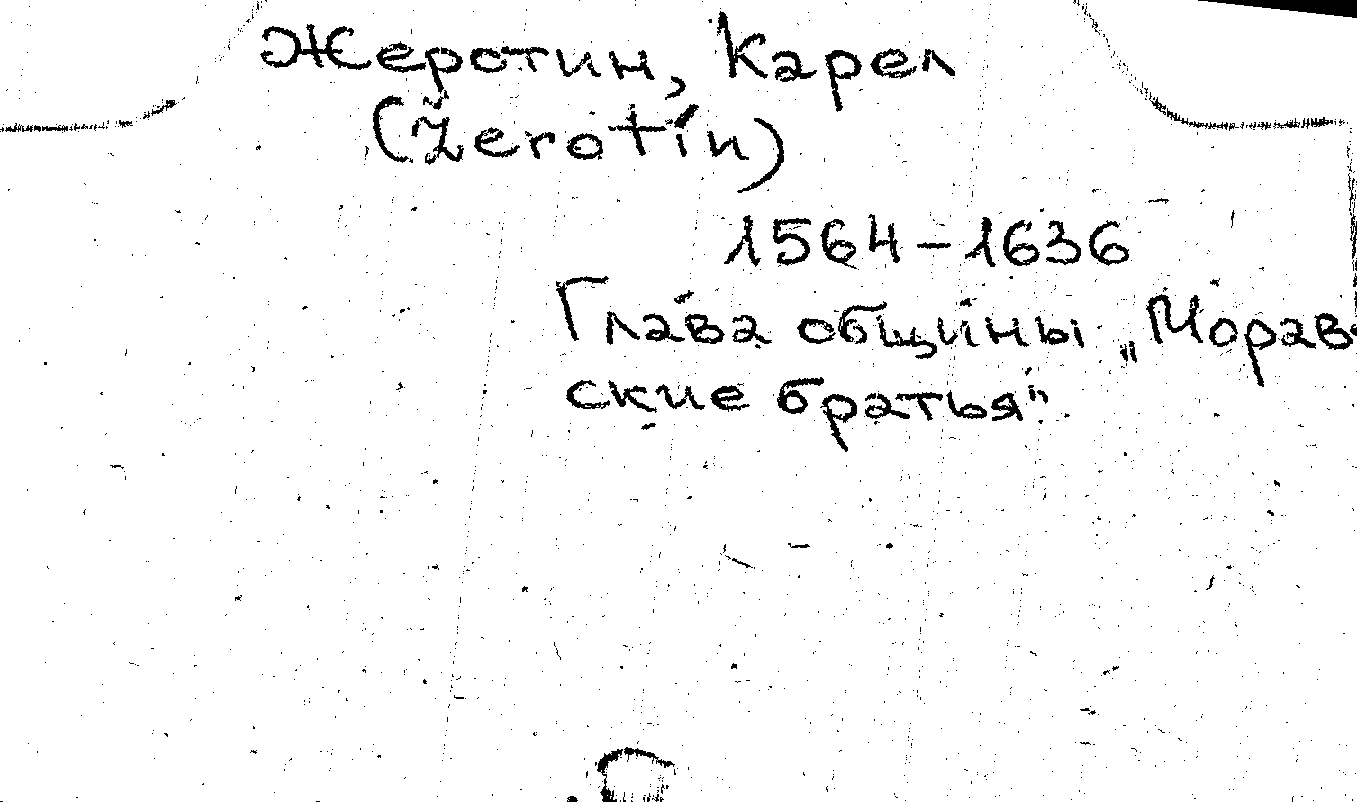 Жеротин, Карел
(Žerotín)
1564-1636
Глава общины „Морав-
ские братья"